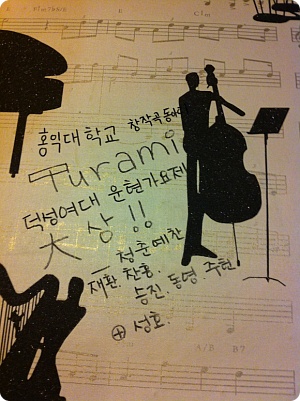 홍익대학교 창작곡동아리
Turami
덕성여대 운현가요제
大상!!
_청춘예찬
재환. 찬홍.
승진. 동영. 주현
⊕ 성호.
A/B B7